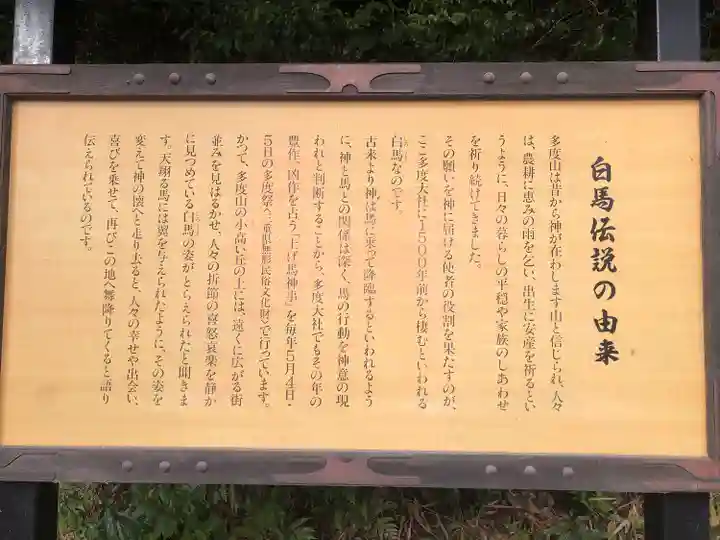 白馬伝説の由来
多度山は昔から神が在わします山と信じられ、人々
は、農耕に恵みの雨を乞い、出生に安産を祈るとい
うように、日々の暮らしの平穏や家族のしあわせ
を祈り続けてきました。
その願いを神に届ける使者の役割を果たすのが、
ここ多度大社に1500年前から棲むといわれる
白馬なのです。
古来より神は馬に乗って降臨するといわれるよう
に、神と馬との関係は深く、馬の行動を神意の現
われと判断することから、多度大社でもその年の
豊作、凶作を占う「上げ馬神事」を毎年5月4日・
5日の多度祭(三重県無形民俗文化財)で行っています。
かつて、多度山の小高い丘の上には、遠くに広がる街
並みを見はるかせ、人々の折節の喜怒哀楽を静か
に見つめている白馬の姿がとらえられたと聞きま
す。天翔る馬には翼を与えられたように、その姿を
変えて神の懐へと走り去ると、人々の幸せや出会い、
喜びを乗せて、再びこの地へ舞い降りてくると語り
伝えられているのです。